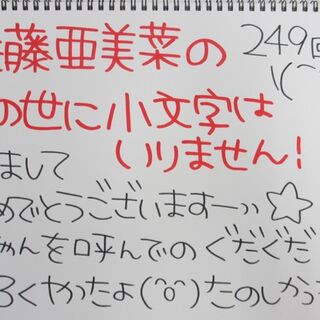 佐藤亜美菜の
249回
の世に小文字は
いりません!
まして
めでとうございますーッ☆
ゃんを呼んでのぐだぐだ
ろくやったよ(^o^)たのしかっ